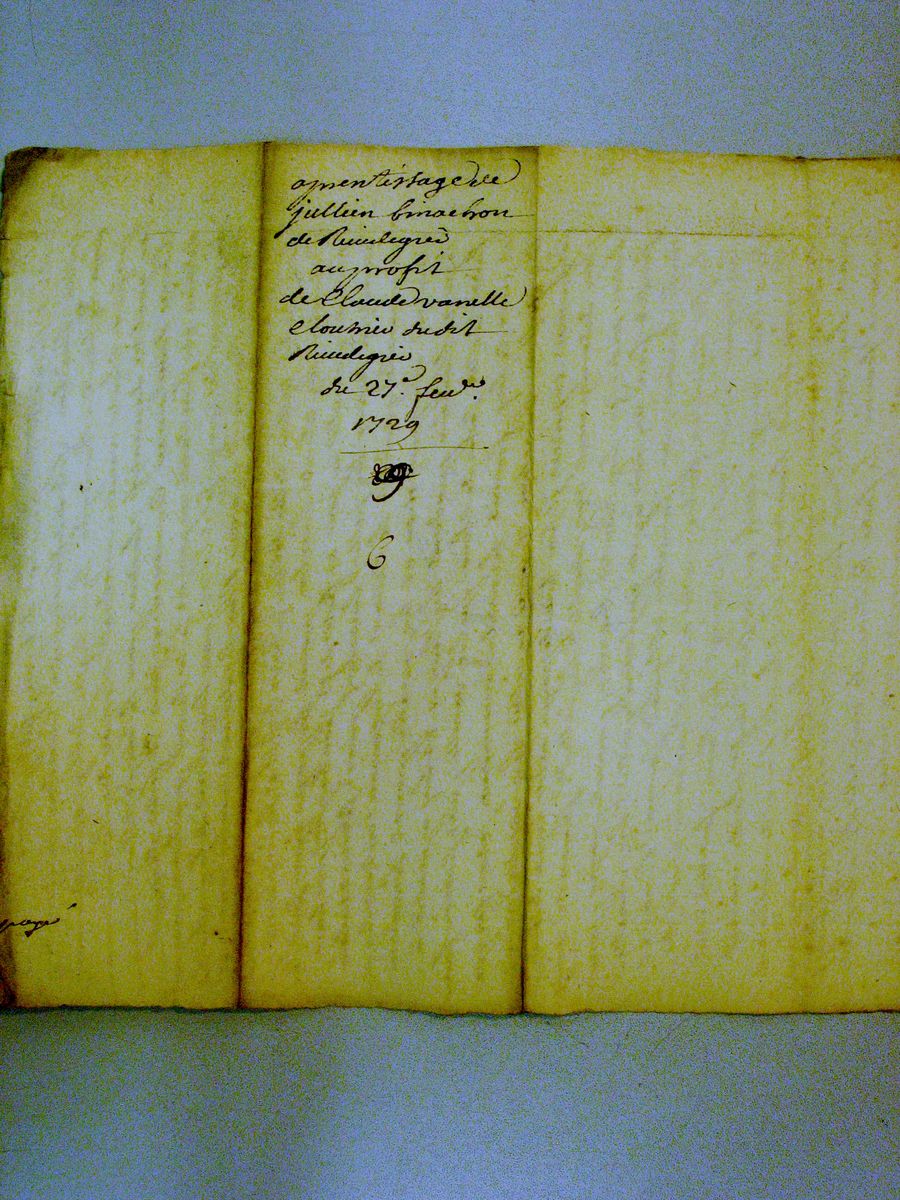 aprentissage de
jullien binachon
de Rivedegier
au profit
de Claude vanelle
Cloutrier dudit
Rivedegier
du 27e. fevr.
1729
6
payé